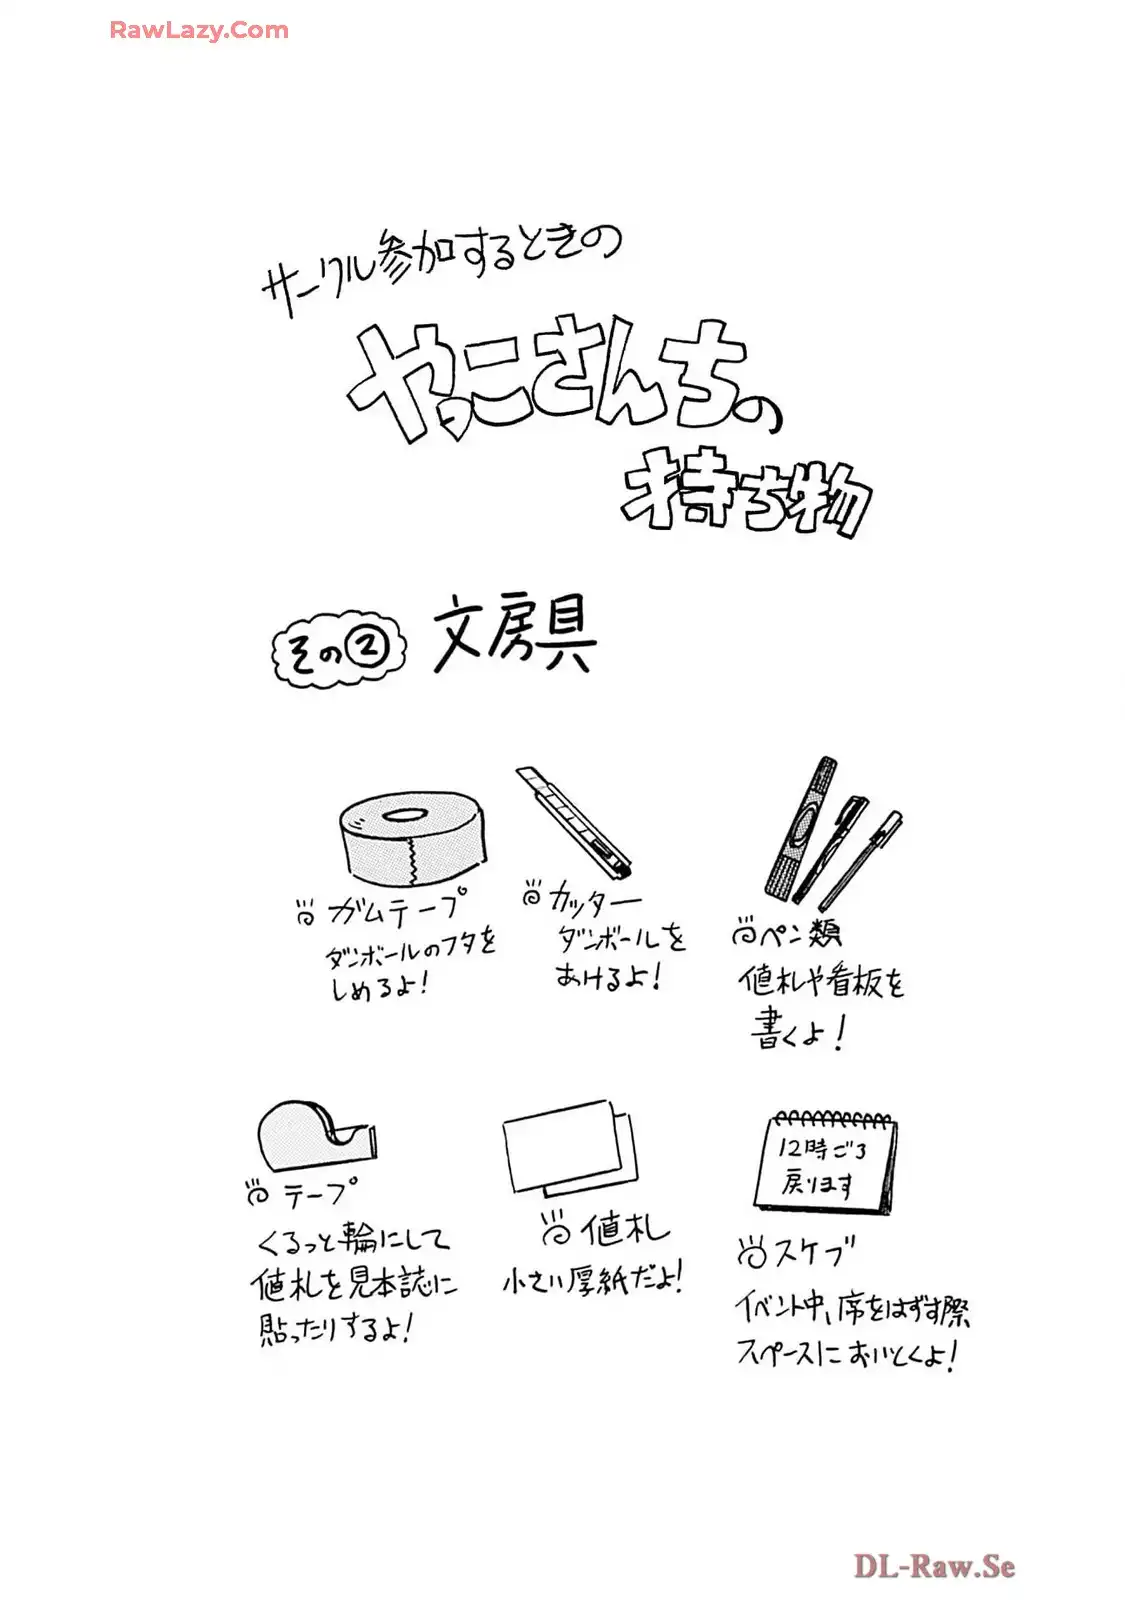 RawLazy.Com
サークル参加するときの
やっこさんちの
持ち物
その② 文房具
ガムテープ
ダンボールのフタを
しめるよ!
カッター
ダンボールを
あけるよ!
ペン類
値札や看板を
書くよ!
テープ
くるっと輪にして
値札を見本誌に
貼ったりするよ!
値札
小さい厚紙だよ!
12時ごろ
戻ります
スケブ
イベント中、席をはずす際
スペースにおいとくよ!
DL-Raw.Se